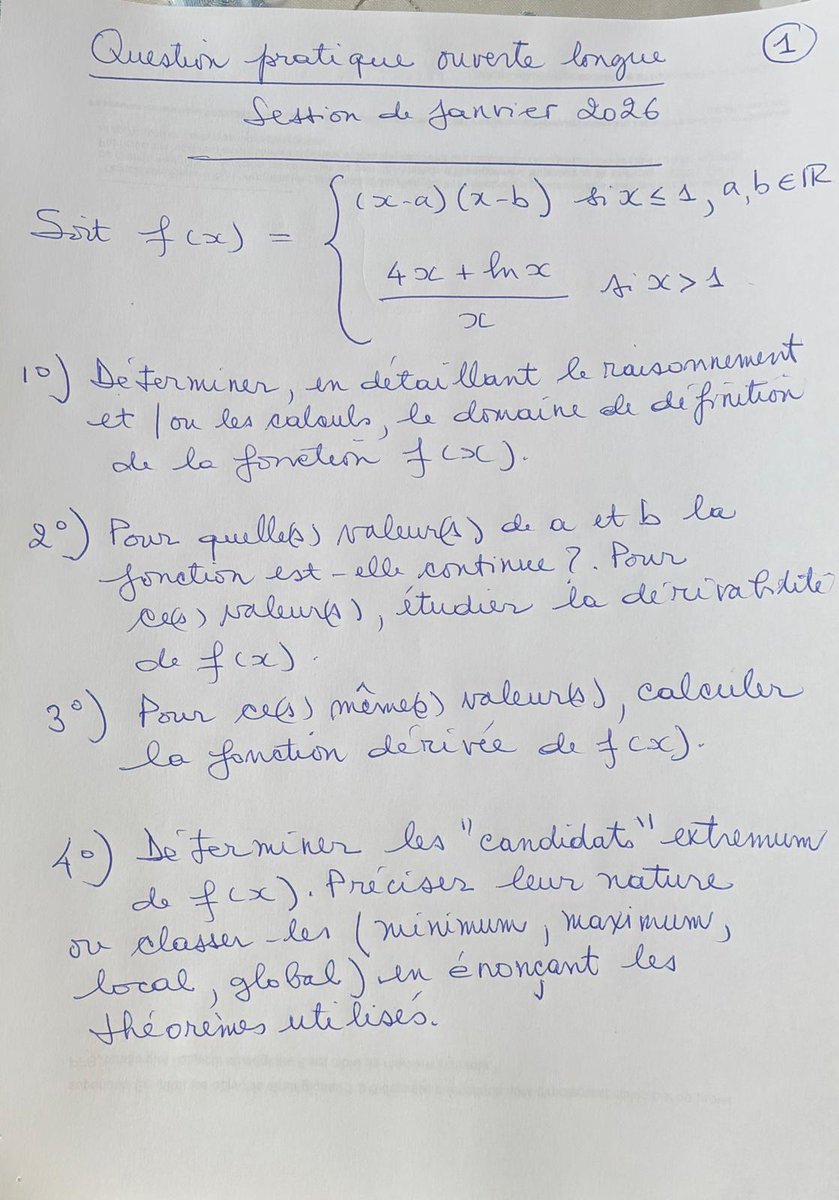 Question pratique ouverte longue
1
Session de Janvier 2026
Soit f(x) = { (x-a)(x-b) si x ≤ 1, a, b ∈ ℝ
(4x + ln x) / x si x > 1
1°) Déterminer, en détaillant le raisonnement
et/ou les calculs, le domaine de définition
de la fonction f(x).
2°) Pour quelle(s) valeur(s) de a et b la
fonction est-elle continue ?. Pour
ce(s) valeur(s), étudier la dérivabilité
de f(x).
3°) Pour ce(s) même(s) valeur(s), calculer
la fonction dérivée de f(x).
4°) Déterminer les "candidats" extremum
de f(x). Précisez leur nature
ou classer-les (minimum, maximum,
local, global) en énonçant les
théorèmes utilisés.